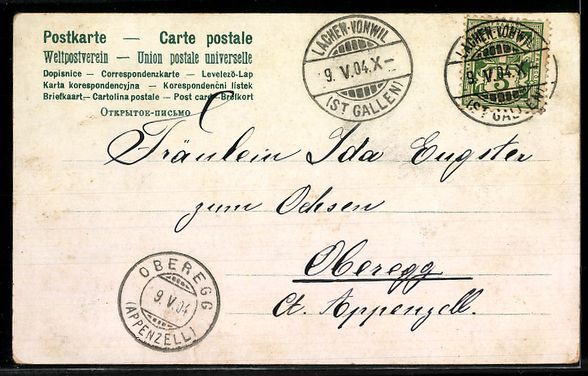 Postkarte — Carte postale
Weltpostverein — Union postale universelle
Dopisnice — Correspondenzkarte — Levelező-Lap
Karta korespondencyjna — Korespondenčni listek
Briefkaart — Cartolina postale — Post card — Brefkort
Открытое-письмо
LACHEN-VONWIL
9. V. 04. X–
(ST GALLEN)
LACHEN-VONWIL
9. V. 04. X–
(ST GALLEN)
5
Fräulein Ida Eugster
zum Ochsen
Oberegg
Ct. Appenzell.
OBEREGG
9. V. 04
(APPENZELL)